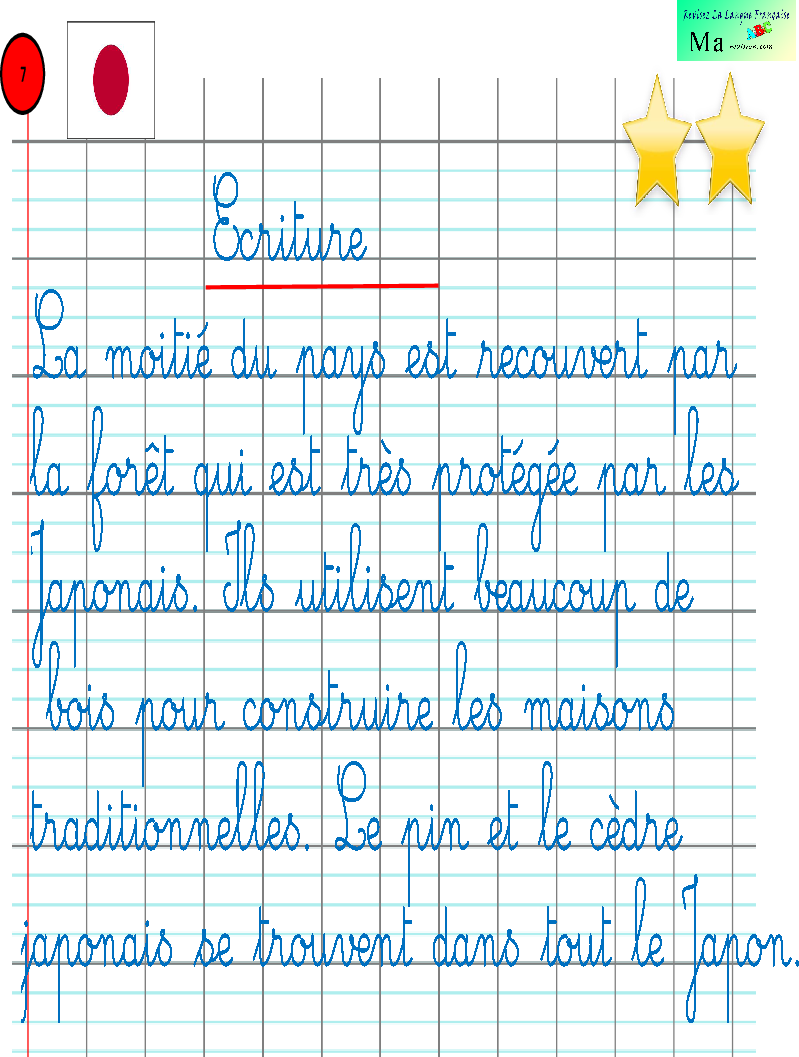 Révisez La Langue Française
Ma
revision.com
7
Ecriture
La moitié du pays est recouvert par
la forêt qui est très protégée par les
Japonais. Ils utilisent beaucoup de
bois pour construire les maisons
traditionnelles. Le pin et le cèdre
japonais se trouvent dans tout le Japon.